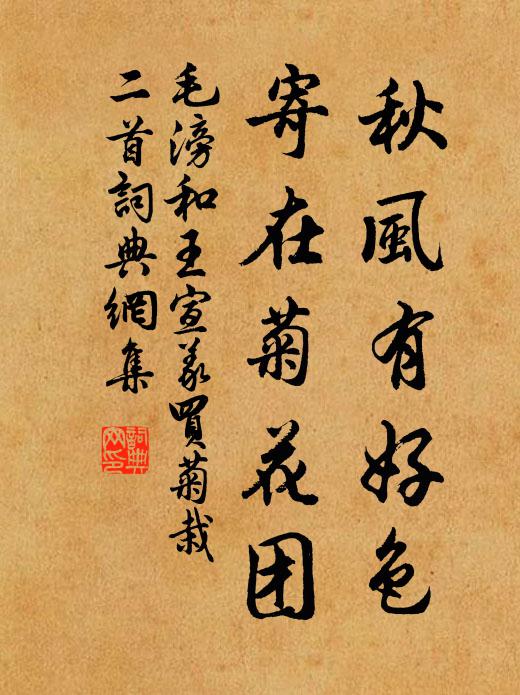 秋風有好色
寄在菊花团
毛滂和王宣义買菊栽
二首詞典網集
詞典网印